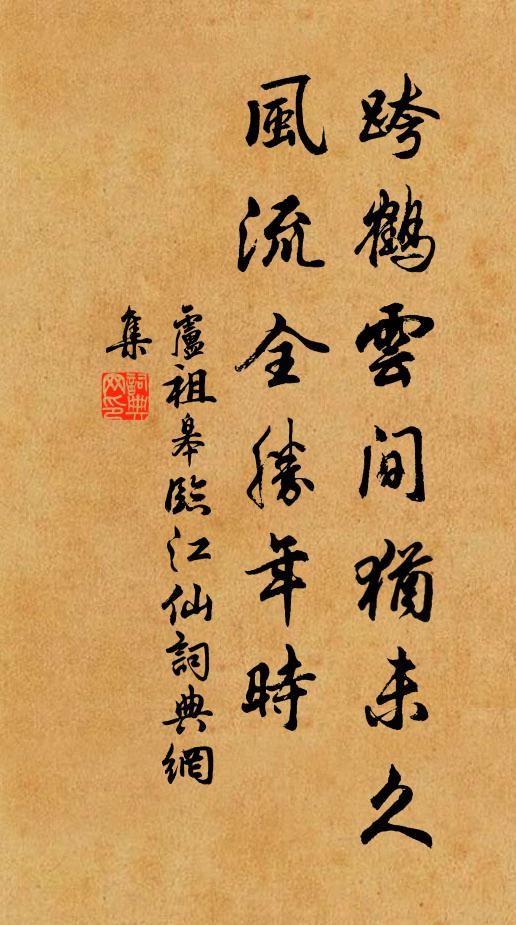 跨鶴雲間猶未久
風流全勝年時
盧祖皋臨江仙詞典網
集
詞典
网印